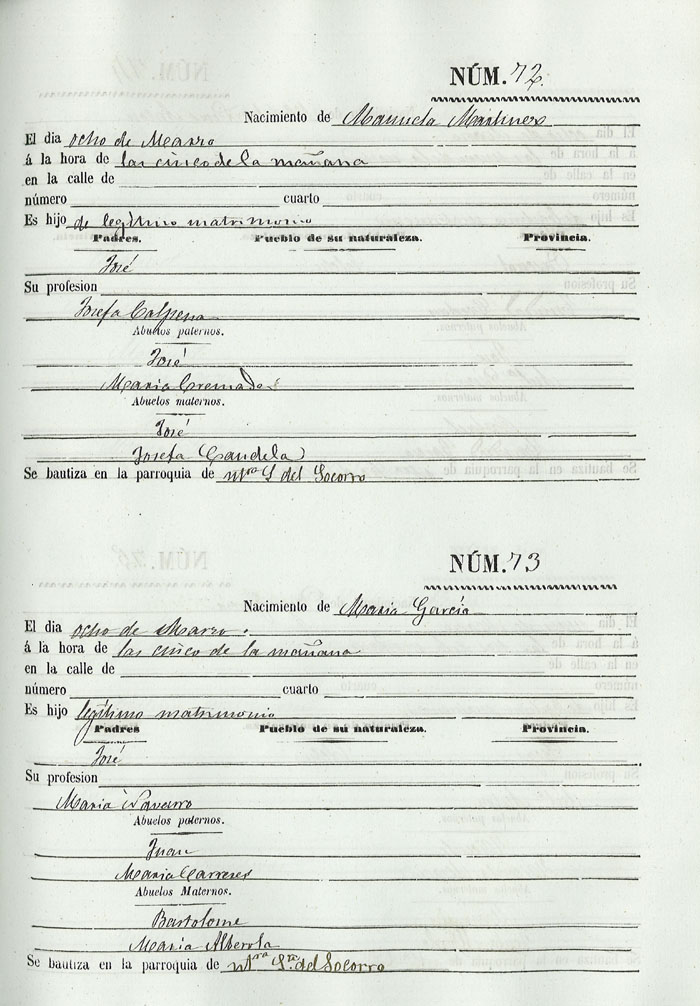 NÚM. 72.
Nacimiento de Manuela Martinez
El dia ocho de Marzo
á la hora de las cinco de la mañana
en la calle de
número cuarto
Es hijo de legitimo matrimonio
Padres. Pueblo de su naturaleza. Provincia.
José
Su profesion
Josefa Calpena
Abuelos paternos.
José
Maria Cremades
Abuelos maternos.
José
Josefa Candela
Se bautiza en la parroquia de ntra S del Socorro
NÚM. 73
Nacimiento de Maria Garcia
El dia ocho de Marzo.
á la hora de las cinco de la mañana
en la calle de
número cuarto
Es hijo legítimo matrimonio
Padres Pueblo de su naturaleza. Provincia.
José
Su profesion
Maria Navarro
Abuelos paternos.
Juan
Maria Carreres
Abuelos Maternos.
Bartolome
Maria Alberola
Se bautiza en la parroquia de ntra Sra. del Socorro